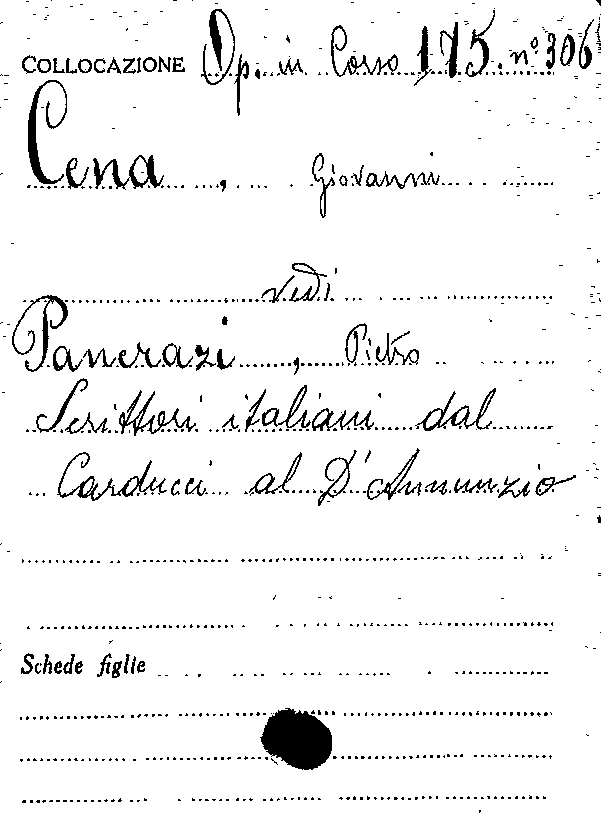 COLLOCAZIONE Op. in Corso 175. n° 306
Cena, Giovanni
vedi
Pancrazi, Pietro
Scrittori italiani dal
Carducci al D'Annunzio
Schede figlie